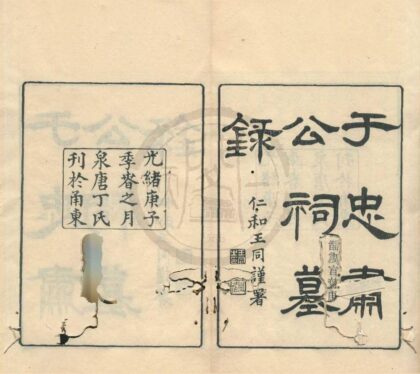 于忠肅
公祠墓
錄
仁和王同謹署
光緒庚子
季春之月
泉唐丁氏
刊於甬東